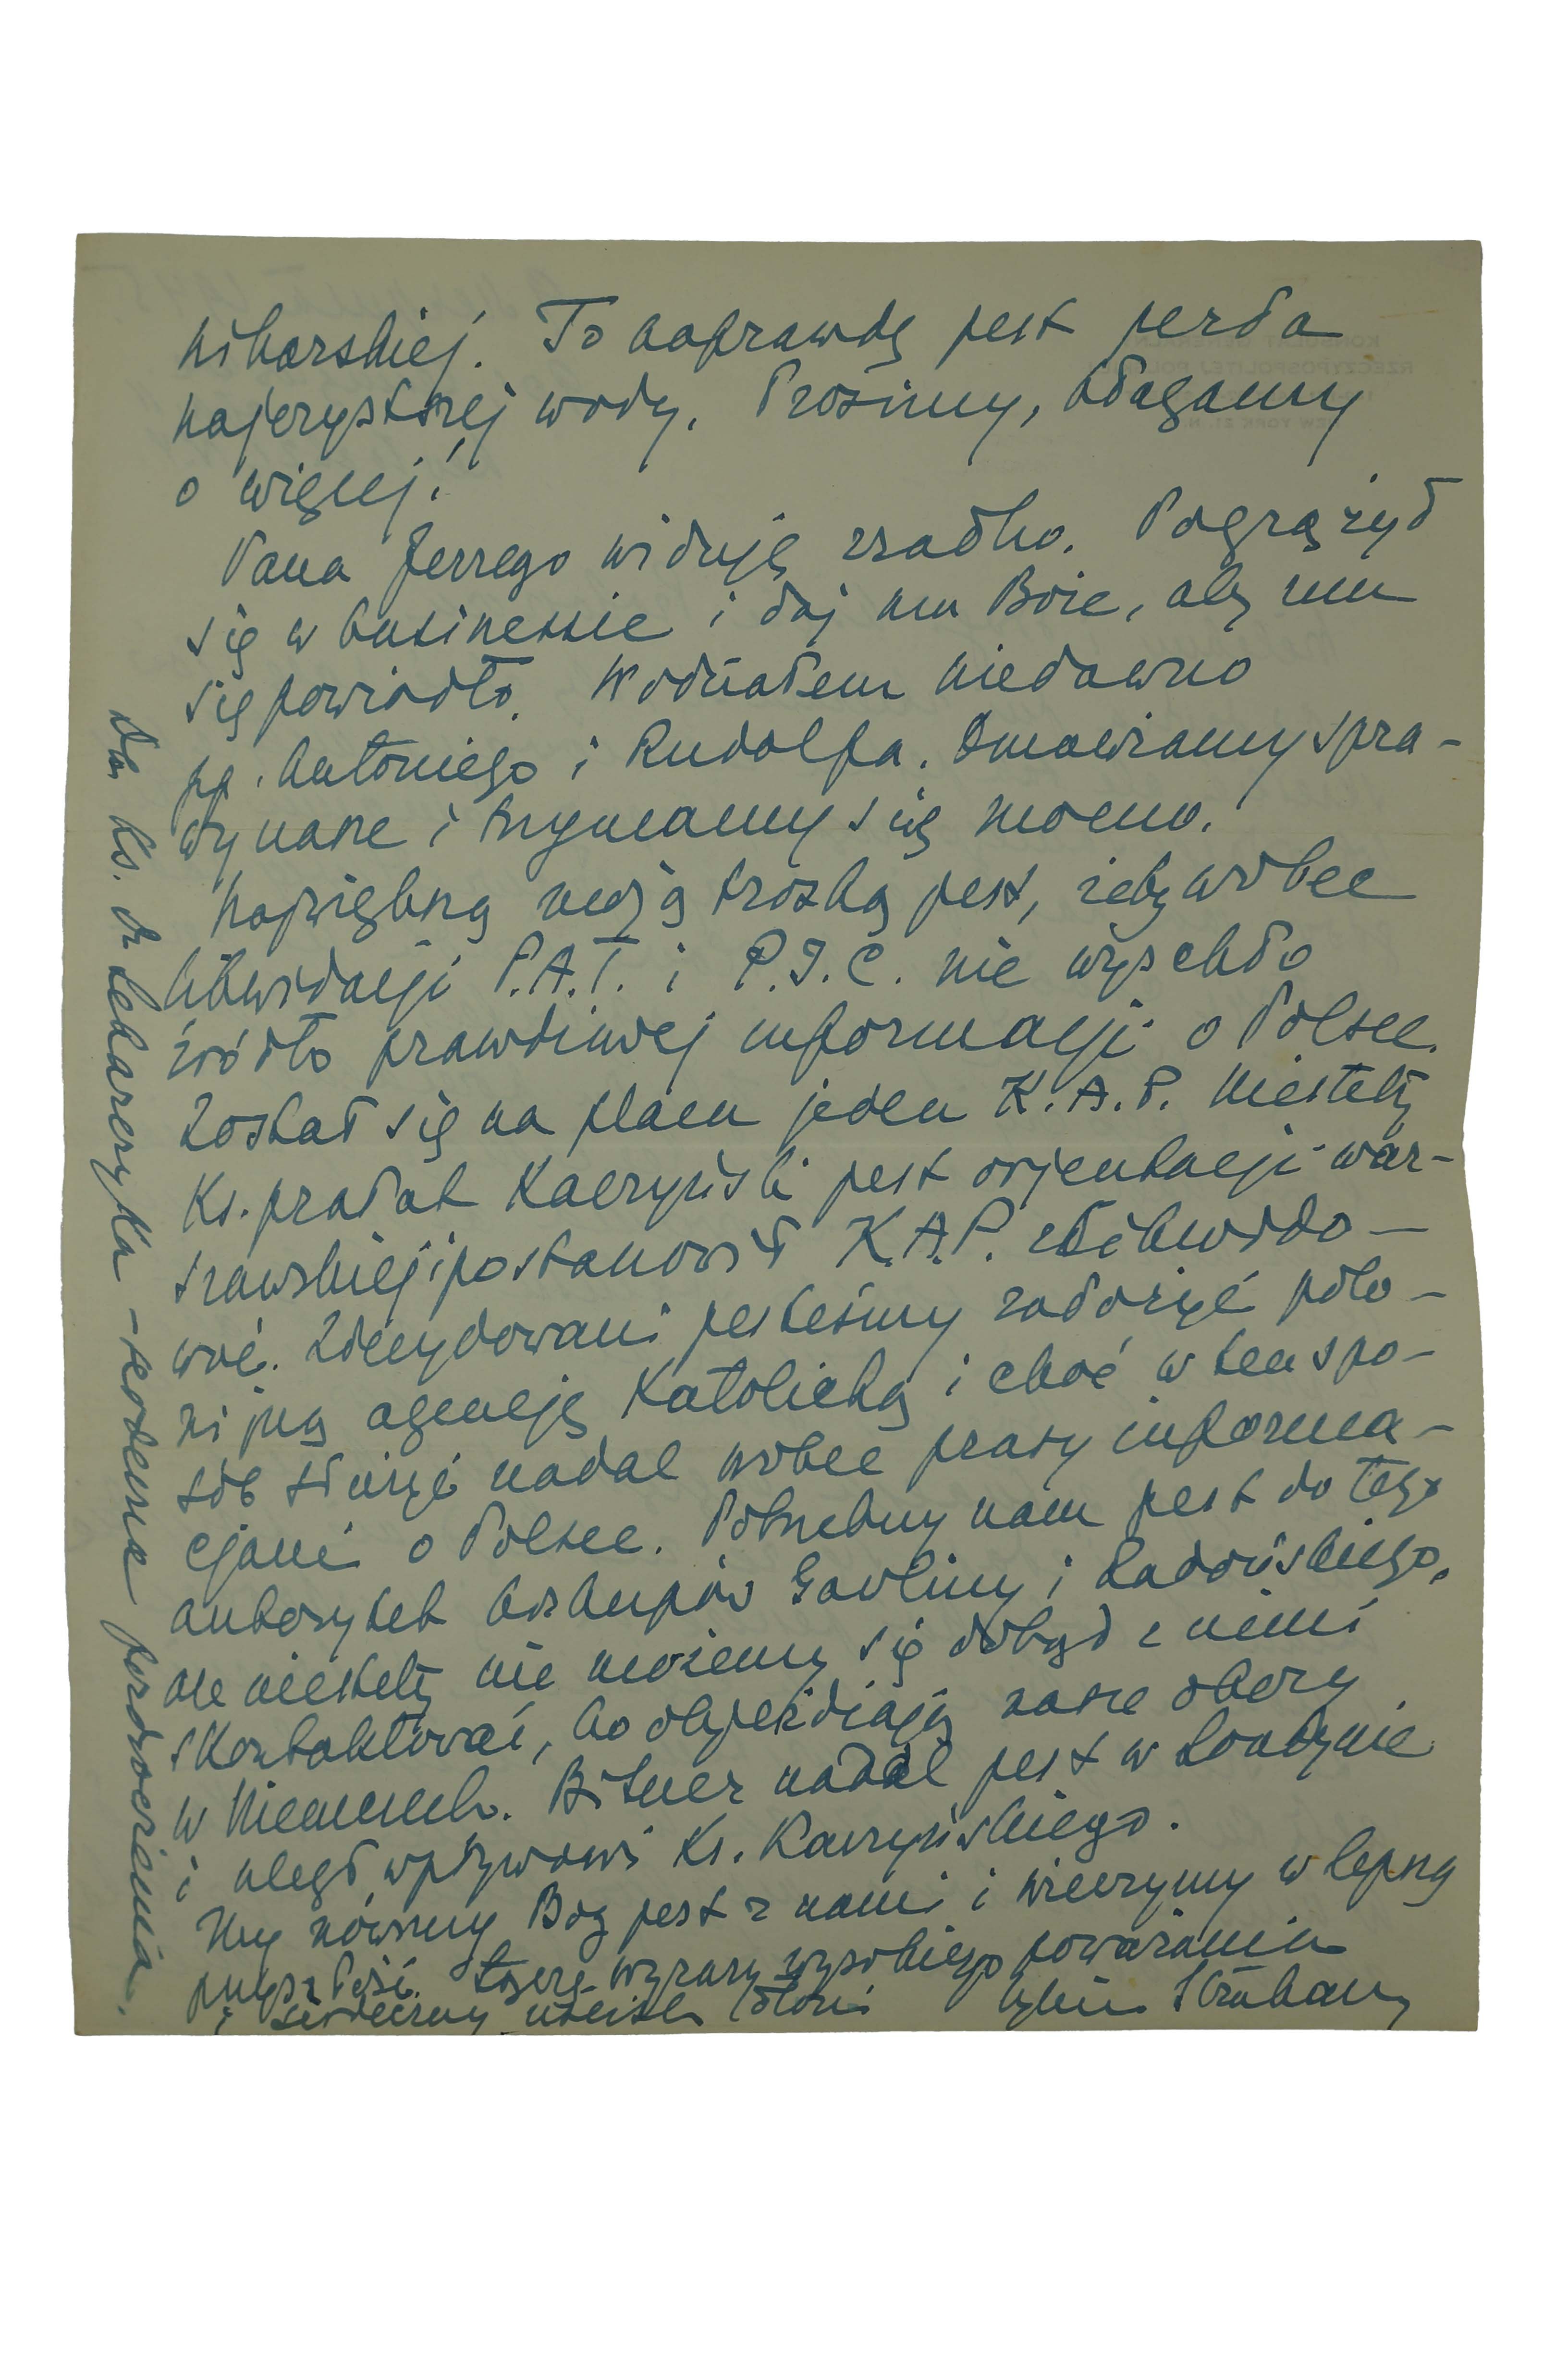 nikarskiej. To naprawdę jest perła
najczystszej wody. Prosimy, błagamy
o więcej!
Pana Jerzego widuję rzadko. Pogrążył
się w businessie i daj mu Boże, aby mu
się powiodło. Widziałem niedawno
pp. Antoniego i Rudolfa. Omawiamy spra-
wy nasze i trzymamy się mocno.
Największą moją troską jest, żeby wobec
likwidacji P.A.T. i P.I.C. nie wyschło
źródło prawdziwej informacji o Polsce.
Został się na placu jeden K.A.P. Niestety
Ks. prałat Kaczyński jest orjentacji war-
szawskiej i postanowił K.A.P. zlikwido-
wać. Zdecydowani jesteśmy założyć polo-
nijną agencję Katolicką i choć w ten spo-
sób służyć nadal wobec prasy informa-
cjami o Polsce. Potrzebny nam jest do tego
autorytet biskupów Gawliny i Radońskiego,
ale niestety nie możemy się dotąd z nimi
skontaktować, bo objeżdżają nasze obozy
w Niemczech. Bitner nadal jest w Londynie
i uległ wpływowi Ks. Kaczyńskiego.
My mówimy Bóg jest z nami i wierzymy w lepszą
przyszłość. Łączę wyrazy wysokiego poważania
i serdeczny uścisk dłoni Strakacz
Dla Ks. dr Lekarczyka - serdeczne pozdrowienia.